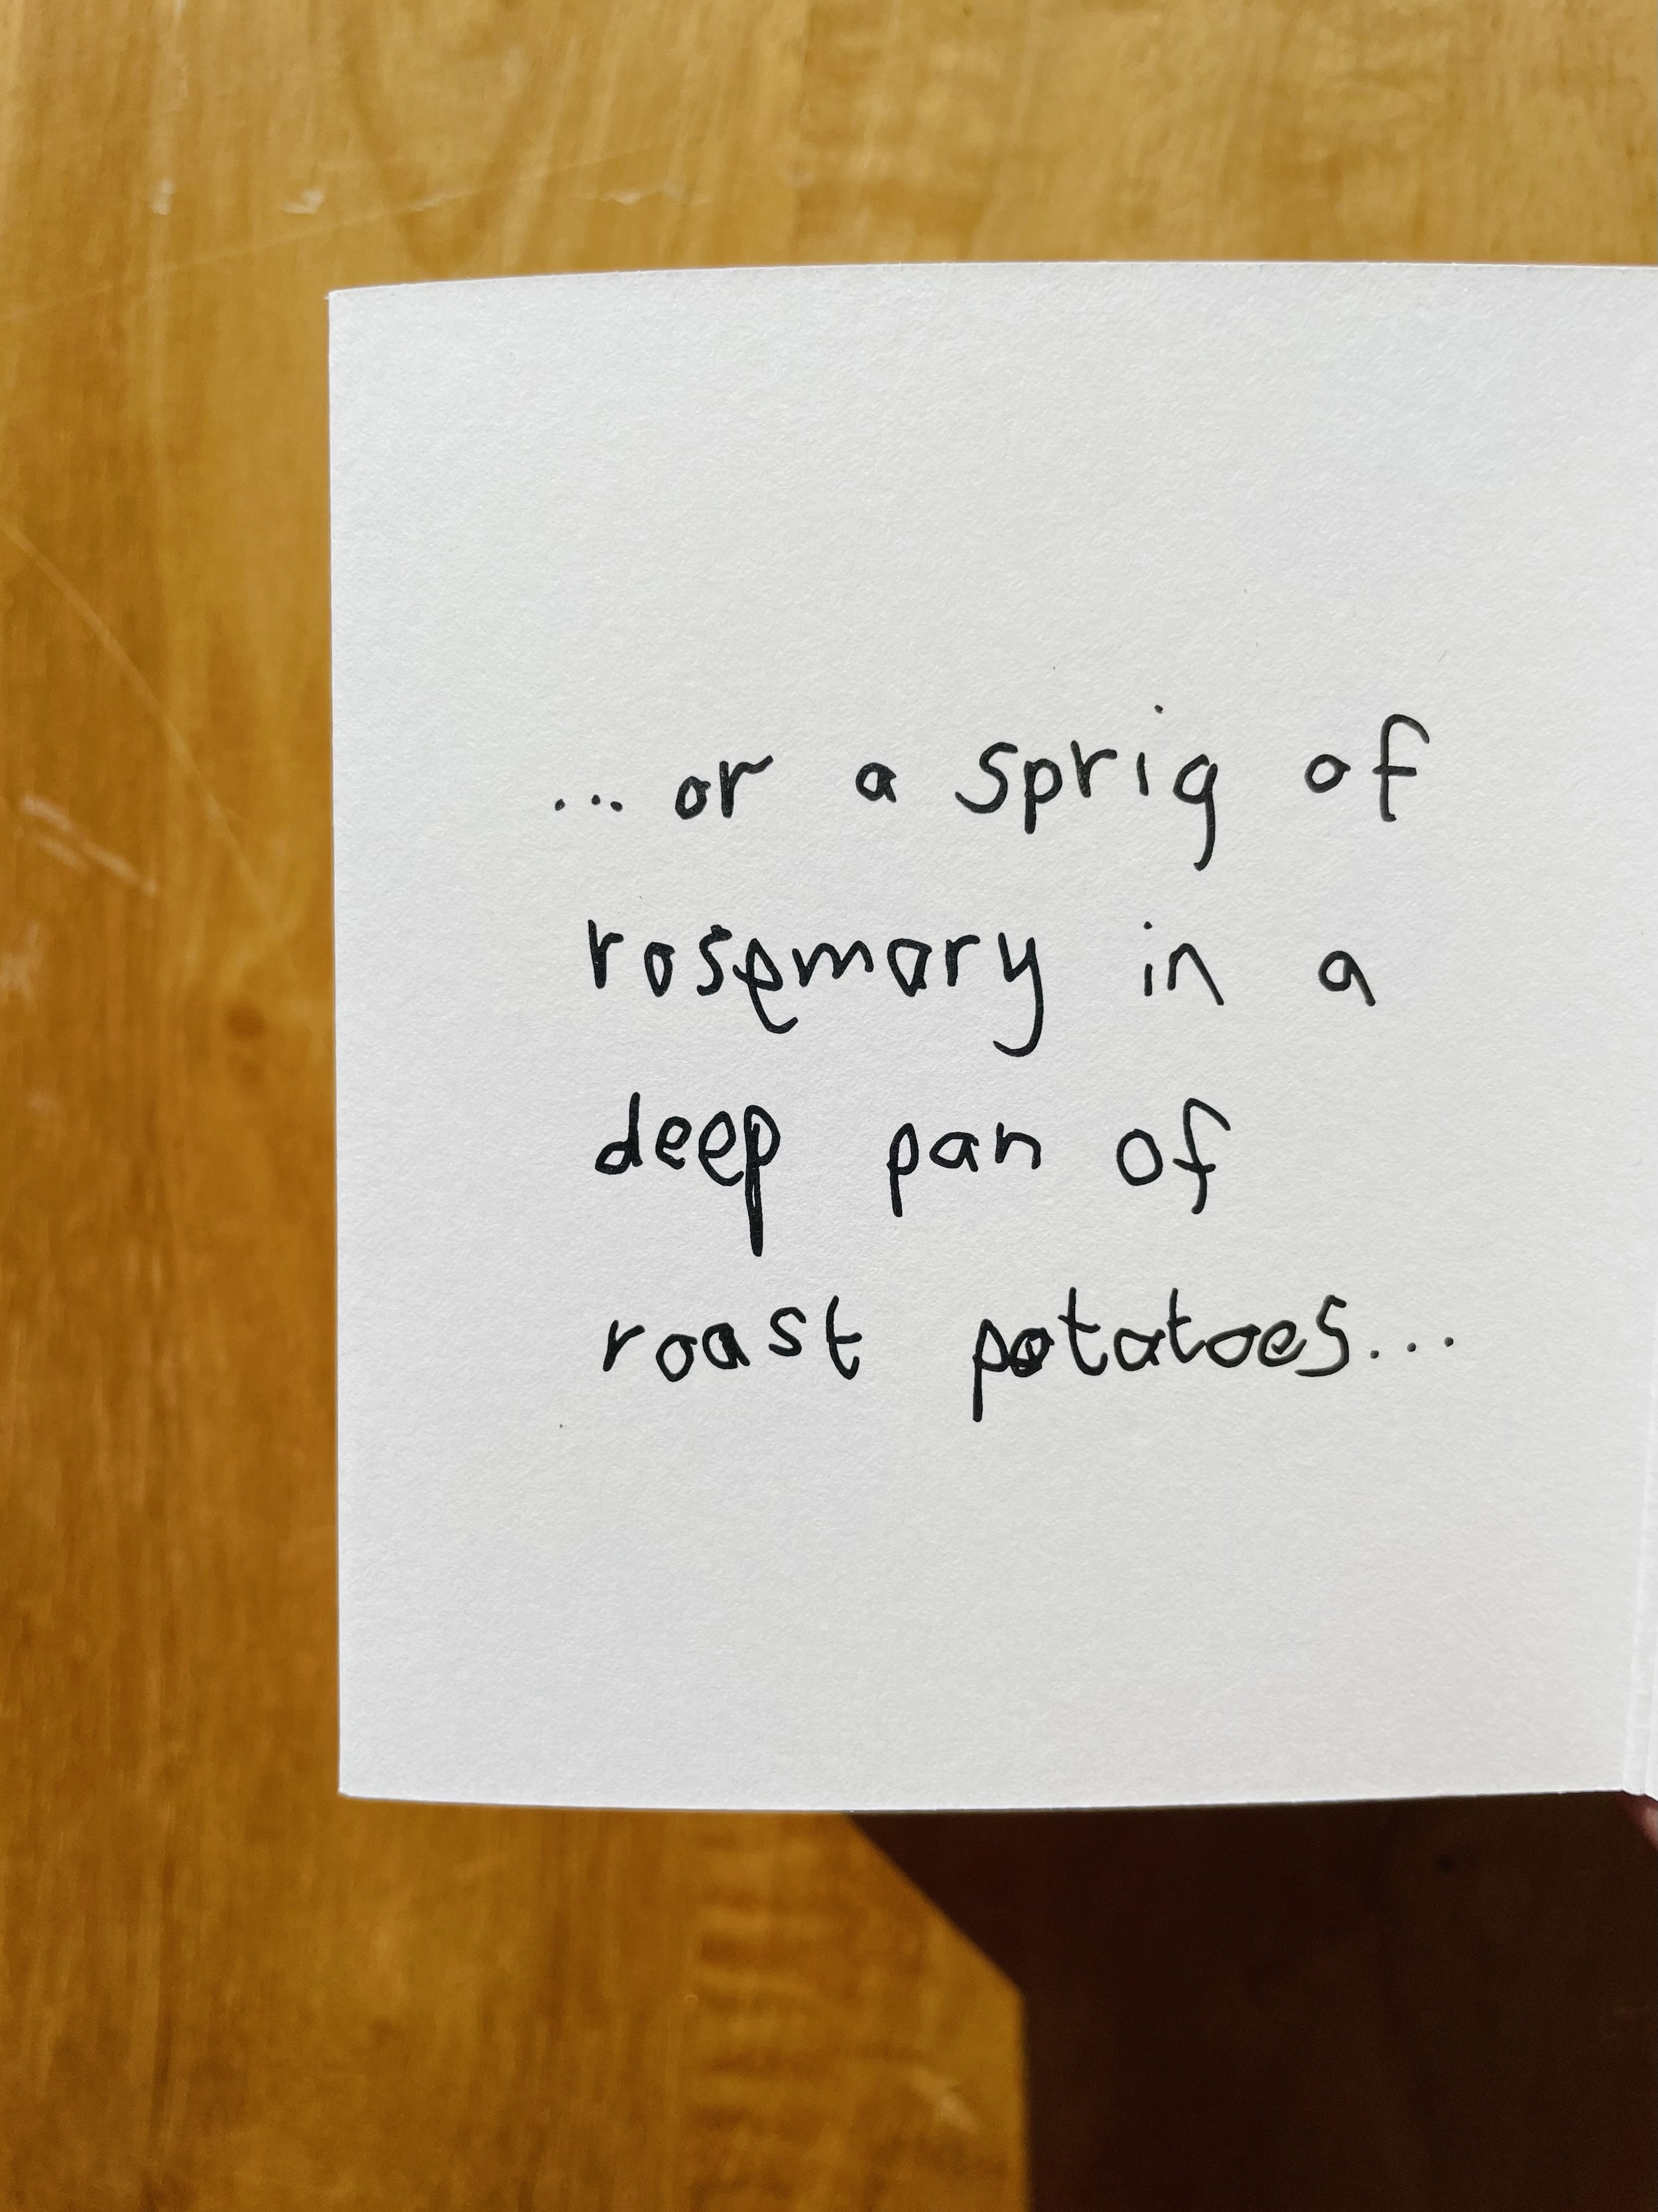 ... or a sprig of
rosemary in a
deep pan of
roast potatoes...